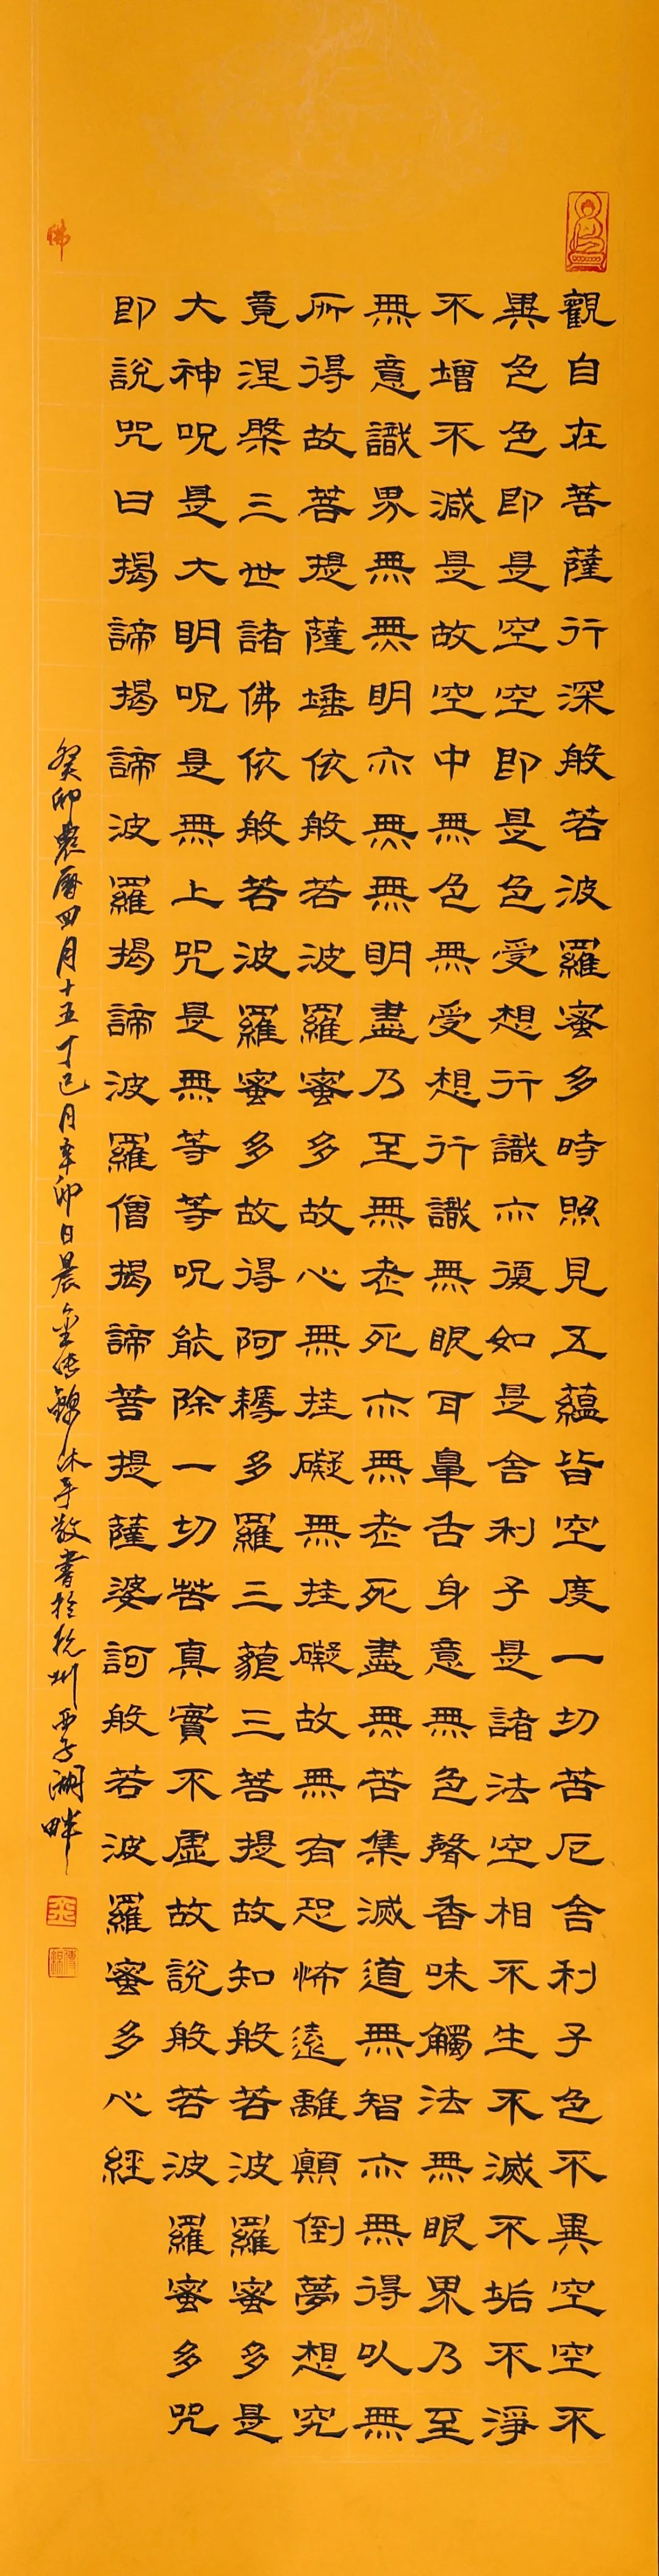 觀自在菩薩行深般若波羅蜜多時照見五蘊皆空度一切苦厄舍利子色不異空空不
異色色即是空空即是色受想行識亦復如是舍利子是諸法空相不生不滅不垢不淨
不增不減是故空中無色無受想行識無眼耳鼻舌身意無色聲香味觸法無眼界乃至
無意識界無無明亦無無明盡乃至無老死亦無老死盡無苦集滅道無智亦無得以無
所得故菩提薩埵依般若波羅蜜多故心無挂礙無挂礙故無有恐怖遠離顛倒夢想究
竟涅槃三世諸佛依般若波羅蜜多故得阿耨多羅三藐三菩提故知般若波羅蜜多是
大神呪是大明呪是無上咒是無等等呪能除一切苦真實不虛故說般若波羅蜜多咒
即說咒曰揭諦揭諦波羅揭諦波羅僧揭諦菩提薩婆訶般若波羅蜜多心經
佛
癸卯農曆四月十五丁巳月辛卯日晨傳錦沐手敬書於杭州西子湖畔